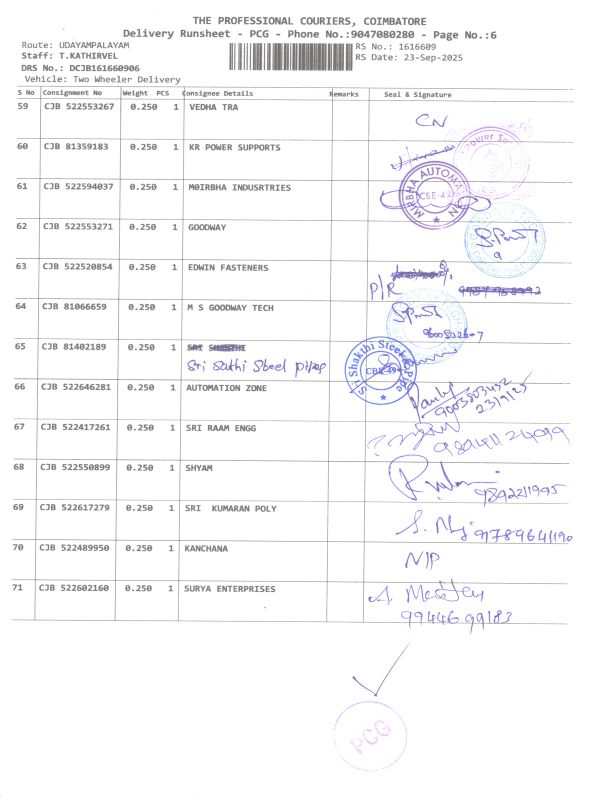 THE PROFESSIONAL COURIERS, COIMBATORE
Delivery Runsheet - PCG - Phone No.:9047080280 - Page No.:6
Route: UDAYAMPALAYAM
RS No.: 1616609
Staff: T.KATHIRVEL
RS Date: 23-Sep-2025
DRS No.: DCJB161660906
Vehicle: Two Wheeler Delivery
S No Consignment No Weight PCS Consignee Details Remarks Seal & Signature
59 CJB 522553267 0.250 1 VEDHA TRA CN
60 CJB 81359183 0.250 1 KR POWER SUPPORTS
61 CJB 522594037 0.250 1 M0IRBHA INDUSRTRIES MIRBHA AUTOMA
62 CJB 522553271 0.250 1 GOODWAY
63 CJB 522520854 0.250 1 EDWIN FASTENERS P/R
64 CJB 81066659 0.250 1 M S GOODWAY TECH
65 CJB 81402189 0.250 1
Sri Shakthi Steel Pipe
66 CJB 522646281 0.250 1 AUTOMATION ZONE 9003803492
23/9/25
67 CJB 522417261 0.250 1 SRI RAAM ENGG
68 CJB 522550899 0.250 1 SHYAM
69 CJB 522617279 0.250 1 SRI KUMARAN POLY
70 CJB 522489950 0.250 1 KANCHANA N/P
71 CJB 522602160 0.250 1 SURYA ENTERPRISES
9944699183
PCG